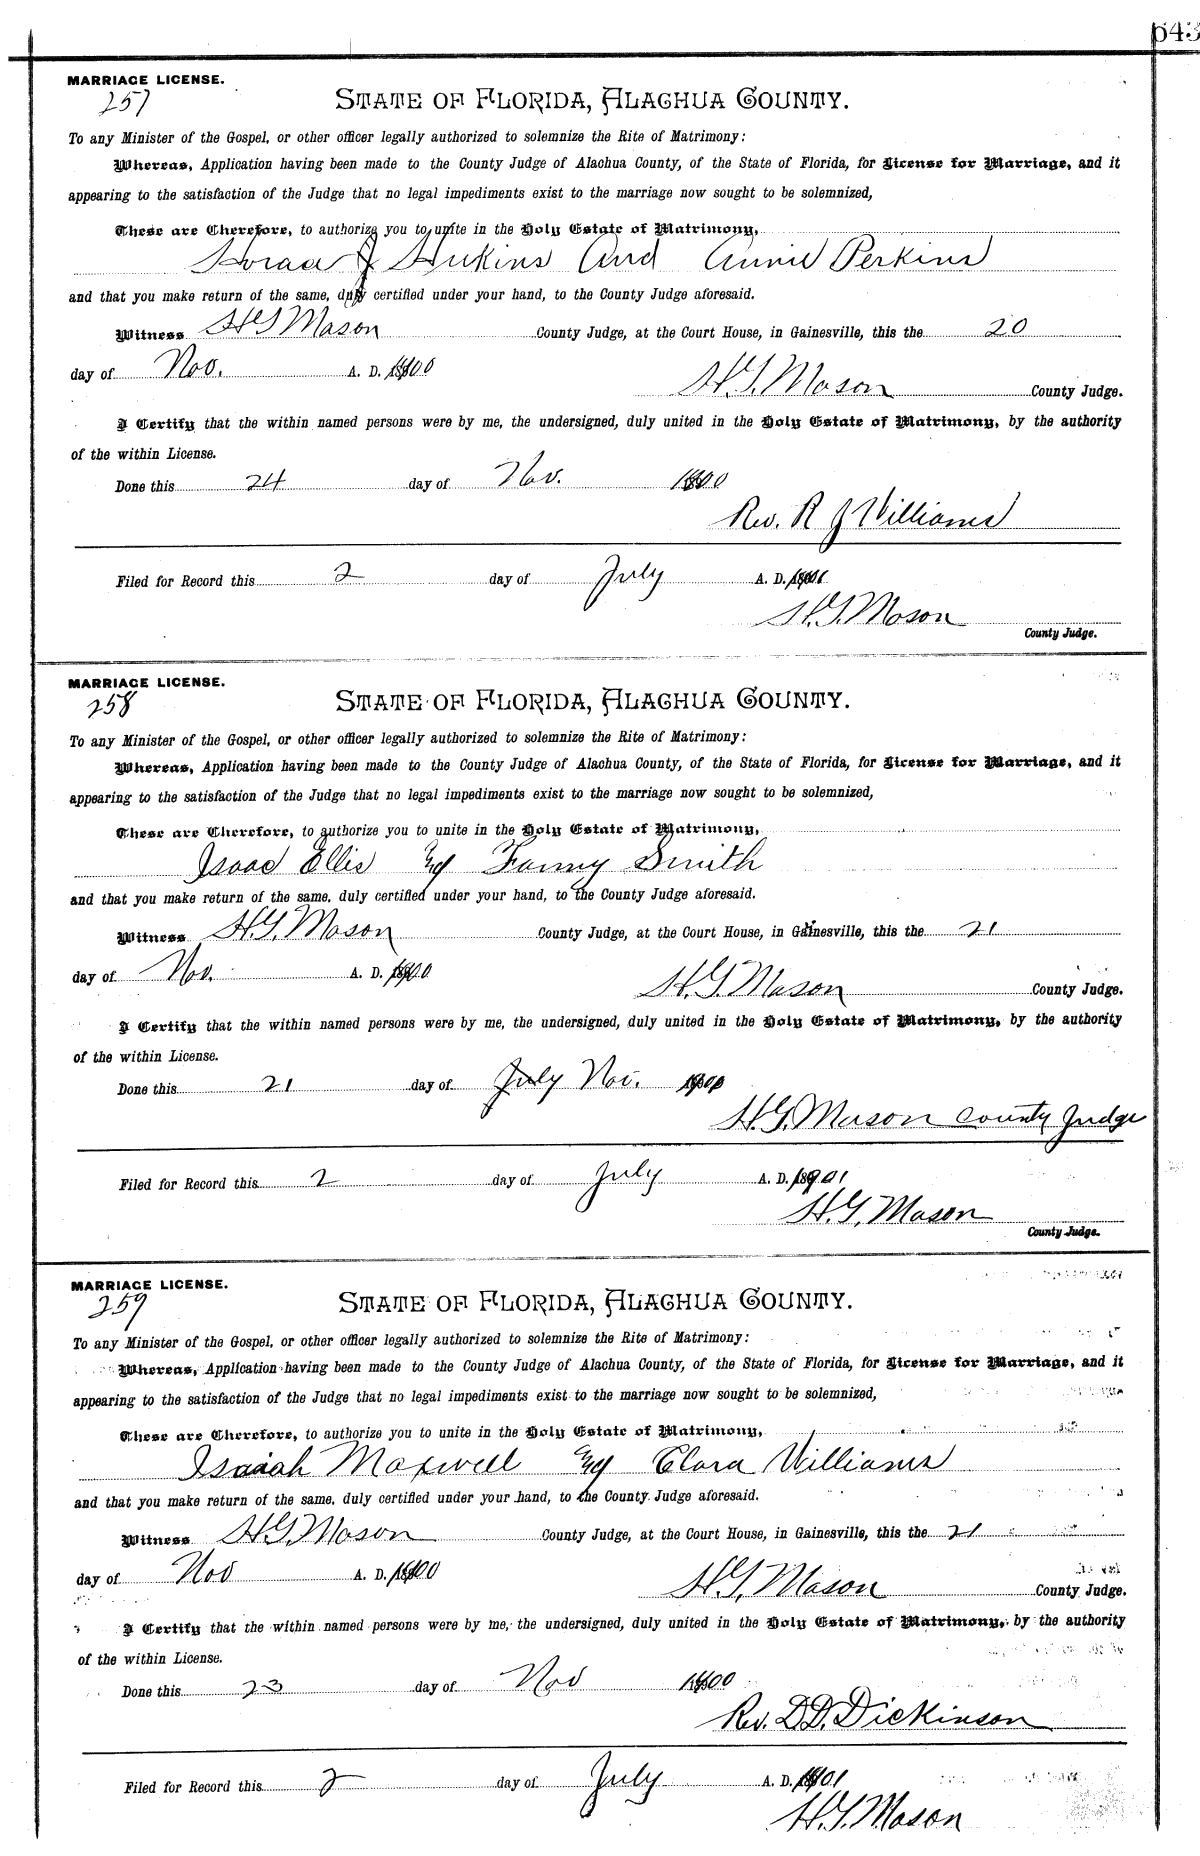 643
MARRIAGE LICENSE.
257
STATE OF FLORIDA, ALACHUA COUNTY.
To any Minister of the Gospel, or other officer legally authorized to solemnize the Rite of Matrimony:
Whereas, Application having been made to the County Judge of Alachua County, of the State of Florida, for License for Marriage, and it
appearing to the satisfaction of the Judge that no legal impediments exist to the marriage now sought to be solemnized,
These are Therefore, to authorize you to unite in the Holy Estate of Matrimony,
J And Annie Perkins
and that you make return of the same, duly certified under your hand, to the County Judge aforesaid.
Witness H.G. Mason County Judge, at the Court House, in Gainesville, this the 20
day of Nov. A. D. 1900
H.G. Mason County Judge.
I Certify that the within named persons were by me, the undersigned, duly united in the Holy Estate of Matrimony, by the authority
of the within License.
Done this 24 day of Nov. 1900
Rev. R J Williams
Filed for Record this 2 day of July A. D. 1901
H.G. Mason
County Judge.
MARRIAGE LICENSE.
258
STATE OF FLORIDA, ALACHUA COUNTY.
To any Minister of the Gospel, or other officer legally authorized to solemnize the Rite of Matrimony:
Whereas, Application having been made to the County Judge of Alachua County, of the State of Florida, for License for Marriage, and it
appearing to the satisfaction of the Judge that no legal impediments exist to the marriage now sought to be solemnized,
These are Therefore, to authorize you to unite in the Holy Estate of Matrimony,
Isaac Ellis & Fanny Smith
and that you make return of the same, duly certified under your hand, to the County Judge aforesaid.
Witness H.G. Mason County Judge, at the Court House, in Gainesville, this the 21
day of Nov. A. D. 1900
H.G. Mason County Judge.
I Certify that the within named persons were by me, the undersigned, duly united in the Holy Estate of Matrimony, by the authority
of the within License.
Done this 21 day of July Nov. 1900
H.G. Mason County Judge
Filed for Record this 2 day of July A. D. 1901
H.G. Mason
County Judge.
MARRIAGE LICENSE.
259
STATE OF FLORIDA, ALACHUA COUNTY.
To any Minister of the Gospel, or other officer legally authorized to solemnize the Rite of Matrimony:
Whereas, Application having been made to the County Judge of Alachua County, of the State of Florida, for License for Marriage, and it
appearing to the satisfaction of the Judge that no legal impediments exist to the marriage now sought to be solemnized,
These are Therefore, to authorize you to unite in the Holy Estate of Matrimony,
Isaiah Maxwell & Clara Williams
and that you make return of the same, duly certified under your hand, to the County Judge aforesaid.
Witness H.G. Mason County Judge, at the Court House, in Gainesville, this the 21
day of Nov A. D. 1900
H.G. Mason County Judge.
I Certify that the within named persons were by me, the undersigned, duly united in the Holy Estate of Matrimony, by the authority
of the within License.
Done this 23 day of Nov 1900
Rev. D.D. Dickinson
Filed for Record this 2 day of July A. D. 1901
H.G. Mason